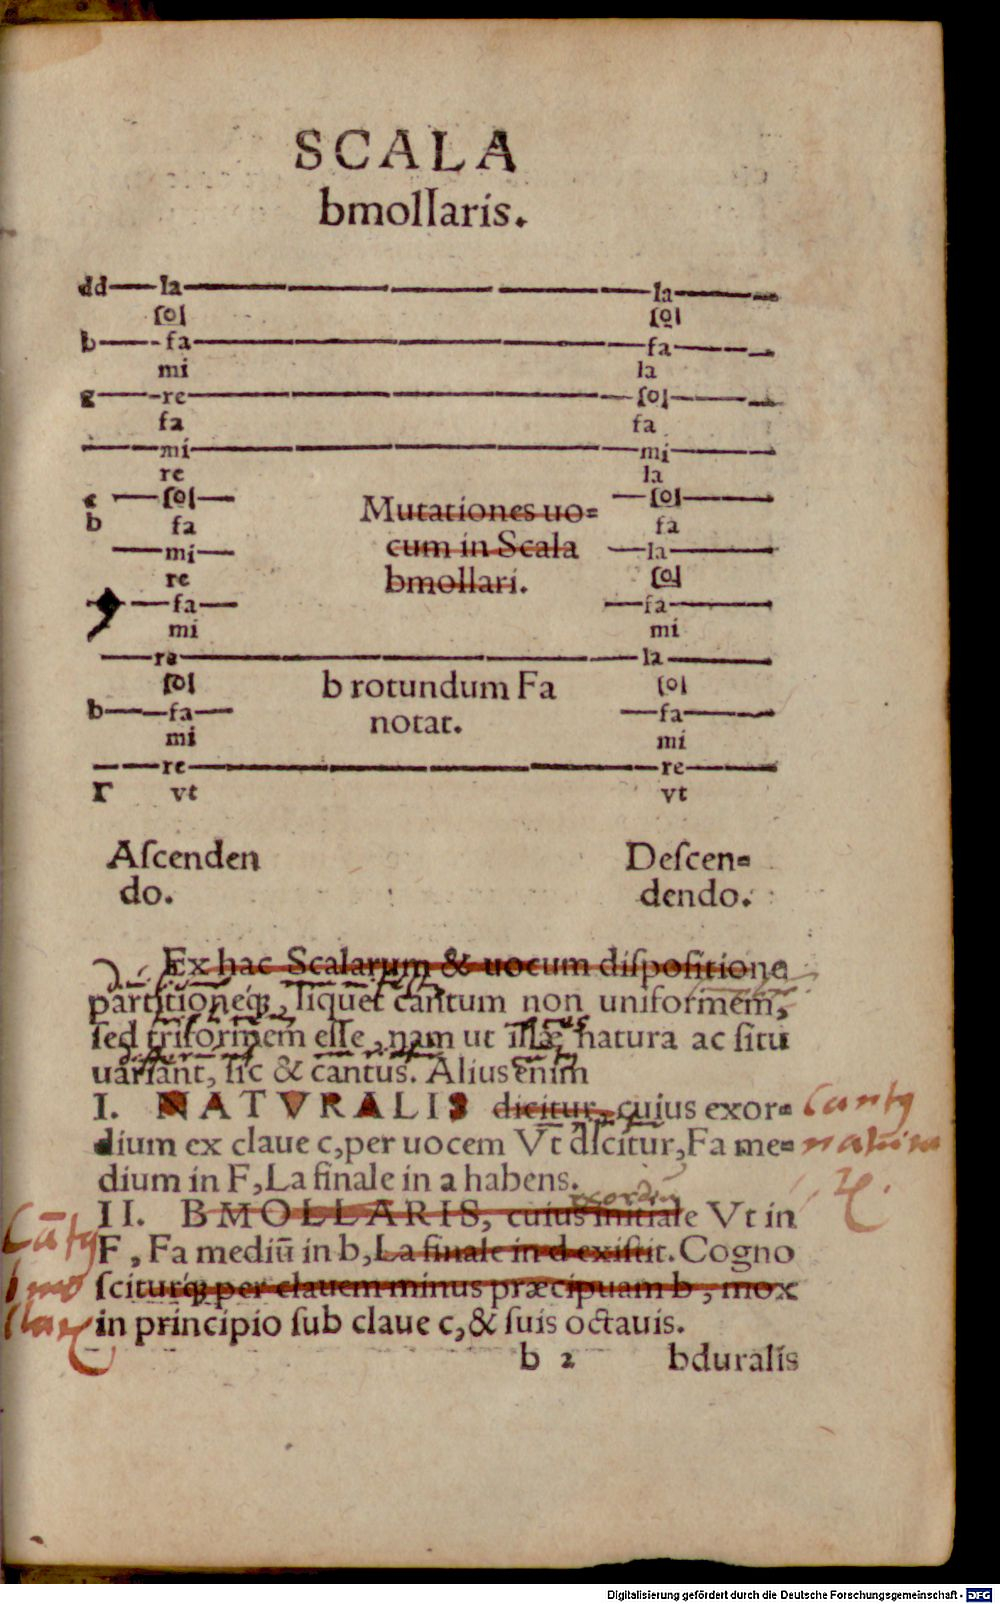 SCALA
bmollaris.
dd la la
ſol ſol
b fa fa
mi la
g re ſol
fa fa
mi mi
re la
ſol ſol
b fa fa
mi la
re ſol
fa fa
mi mi
re la
ſol ſol
b fa fa
mi mi
re re
Γ vt vt
Mutationes uo=
cum in Scala
bmollari.
b rotundum Fa
notat.
Aſcenden
do.
Deſcen=
dendo.
Ex hac Scalarum & uocum diſpoſitione
partitioneq́ꝫ, liquet cantum non uniformem,
ſed triformem eſſe, nam ut illæ natura ac ſitu
uariant, ſic & cantus. Alius enim
I. NATVRALIS dicitur, cuius exor=
dium ex claue c, per uocem Vt dicitur, Fa me=
dium in F, La finale in a habens.
exordiū
II. BMOLLARIS, cuius initiale Vt in
F, Fa mediū in b, La finale in d exiſtit. Cogno
ſciturq́ꝫ per clauem minus præcipuam b, mox
in principio ſub claue c, & ſuis octauis.
b 2 bduralis
Digitalisierung gefördert durch die Deutsche Forschungsgemeinschaft - DFG